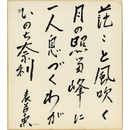 茫々と風吹く
月の照る峰に
一人息づくわが
ひのち奈利